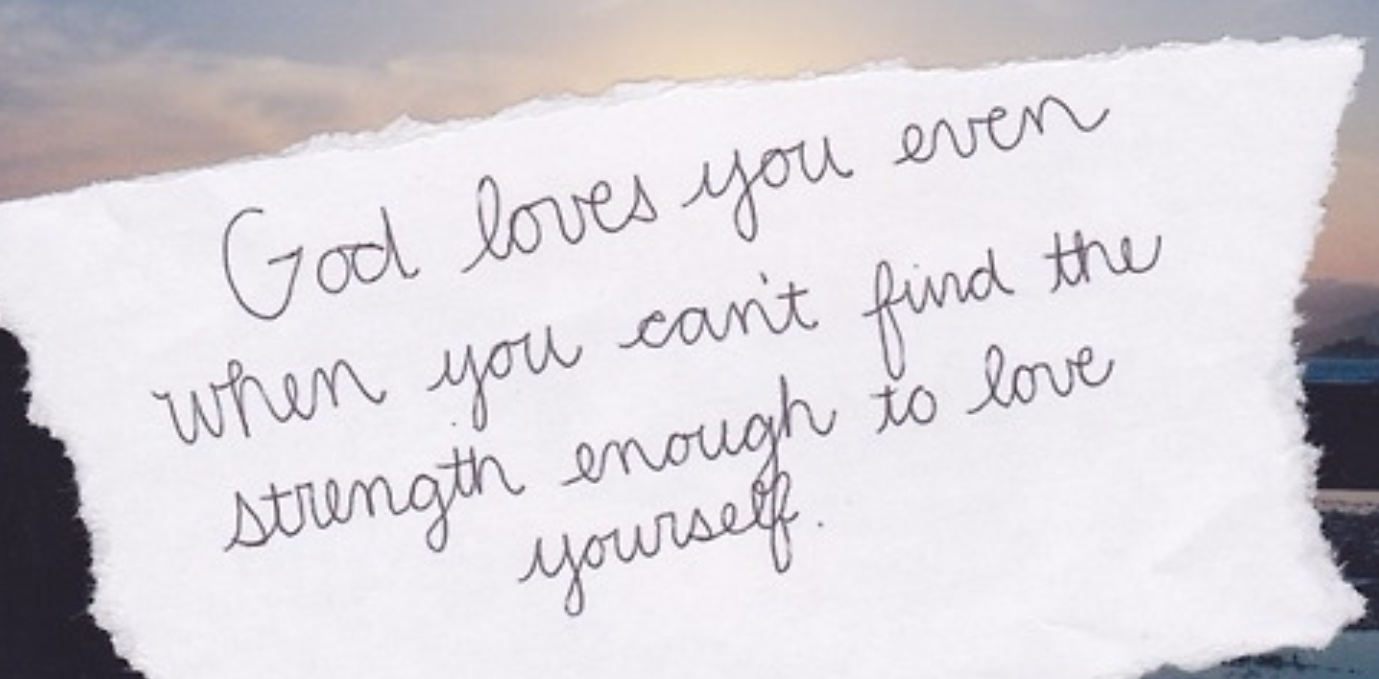 God loves you even
when you can't find the
strength enough to love
yourself.